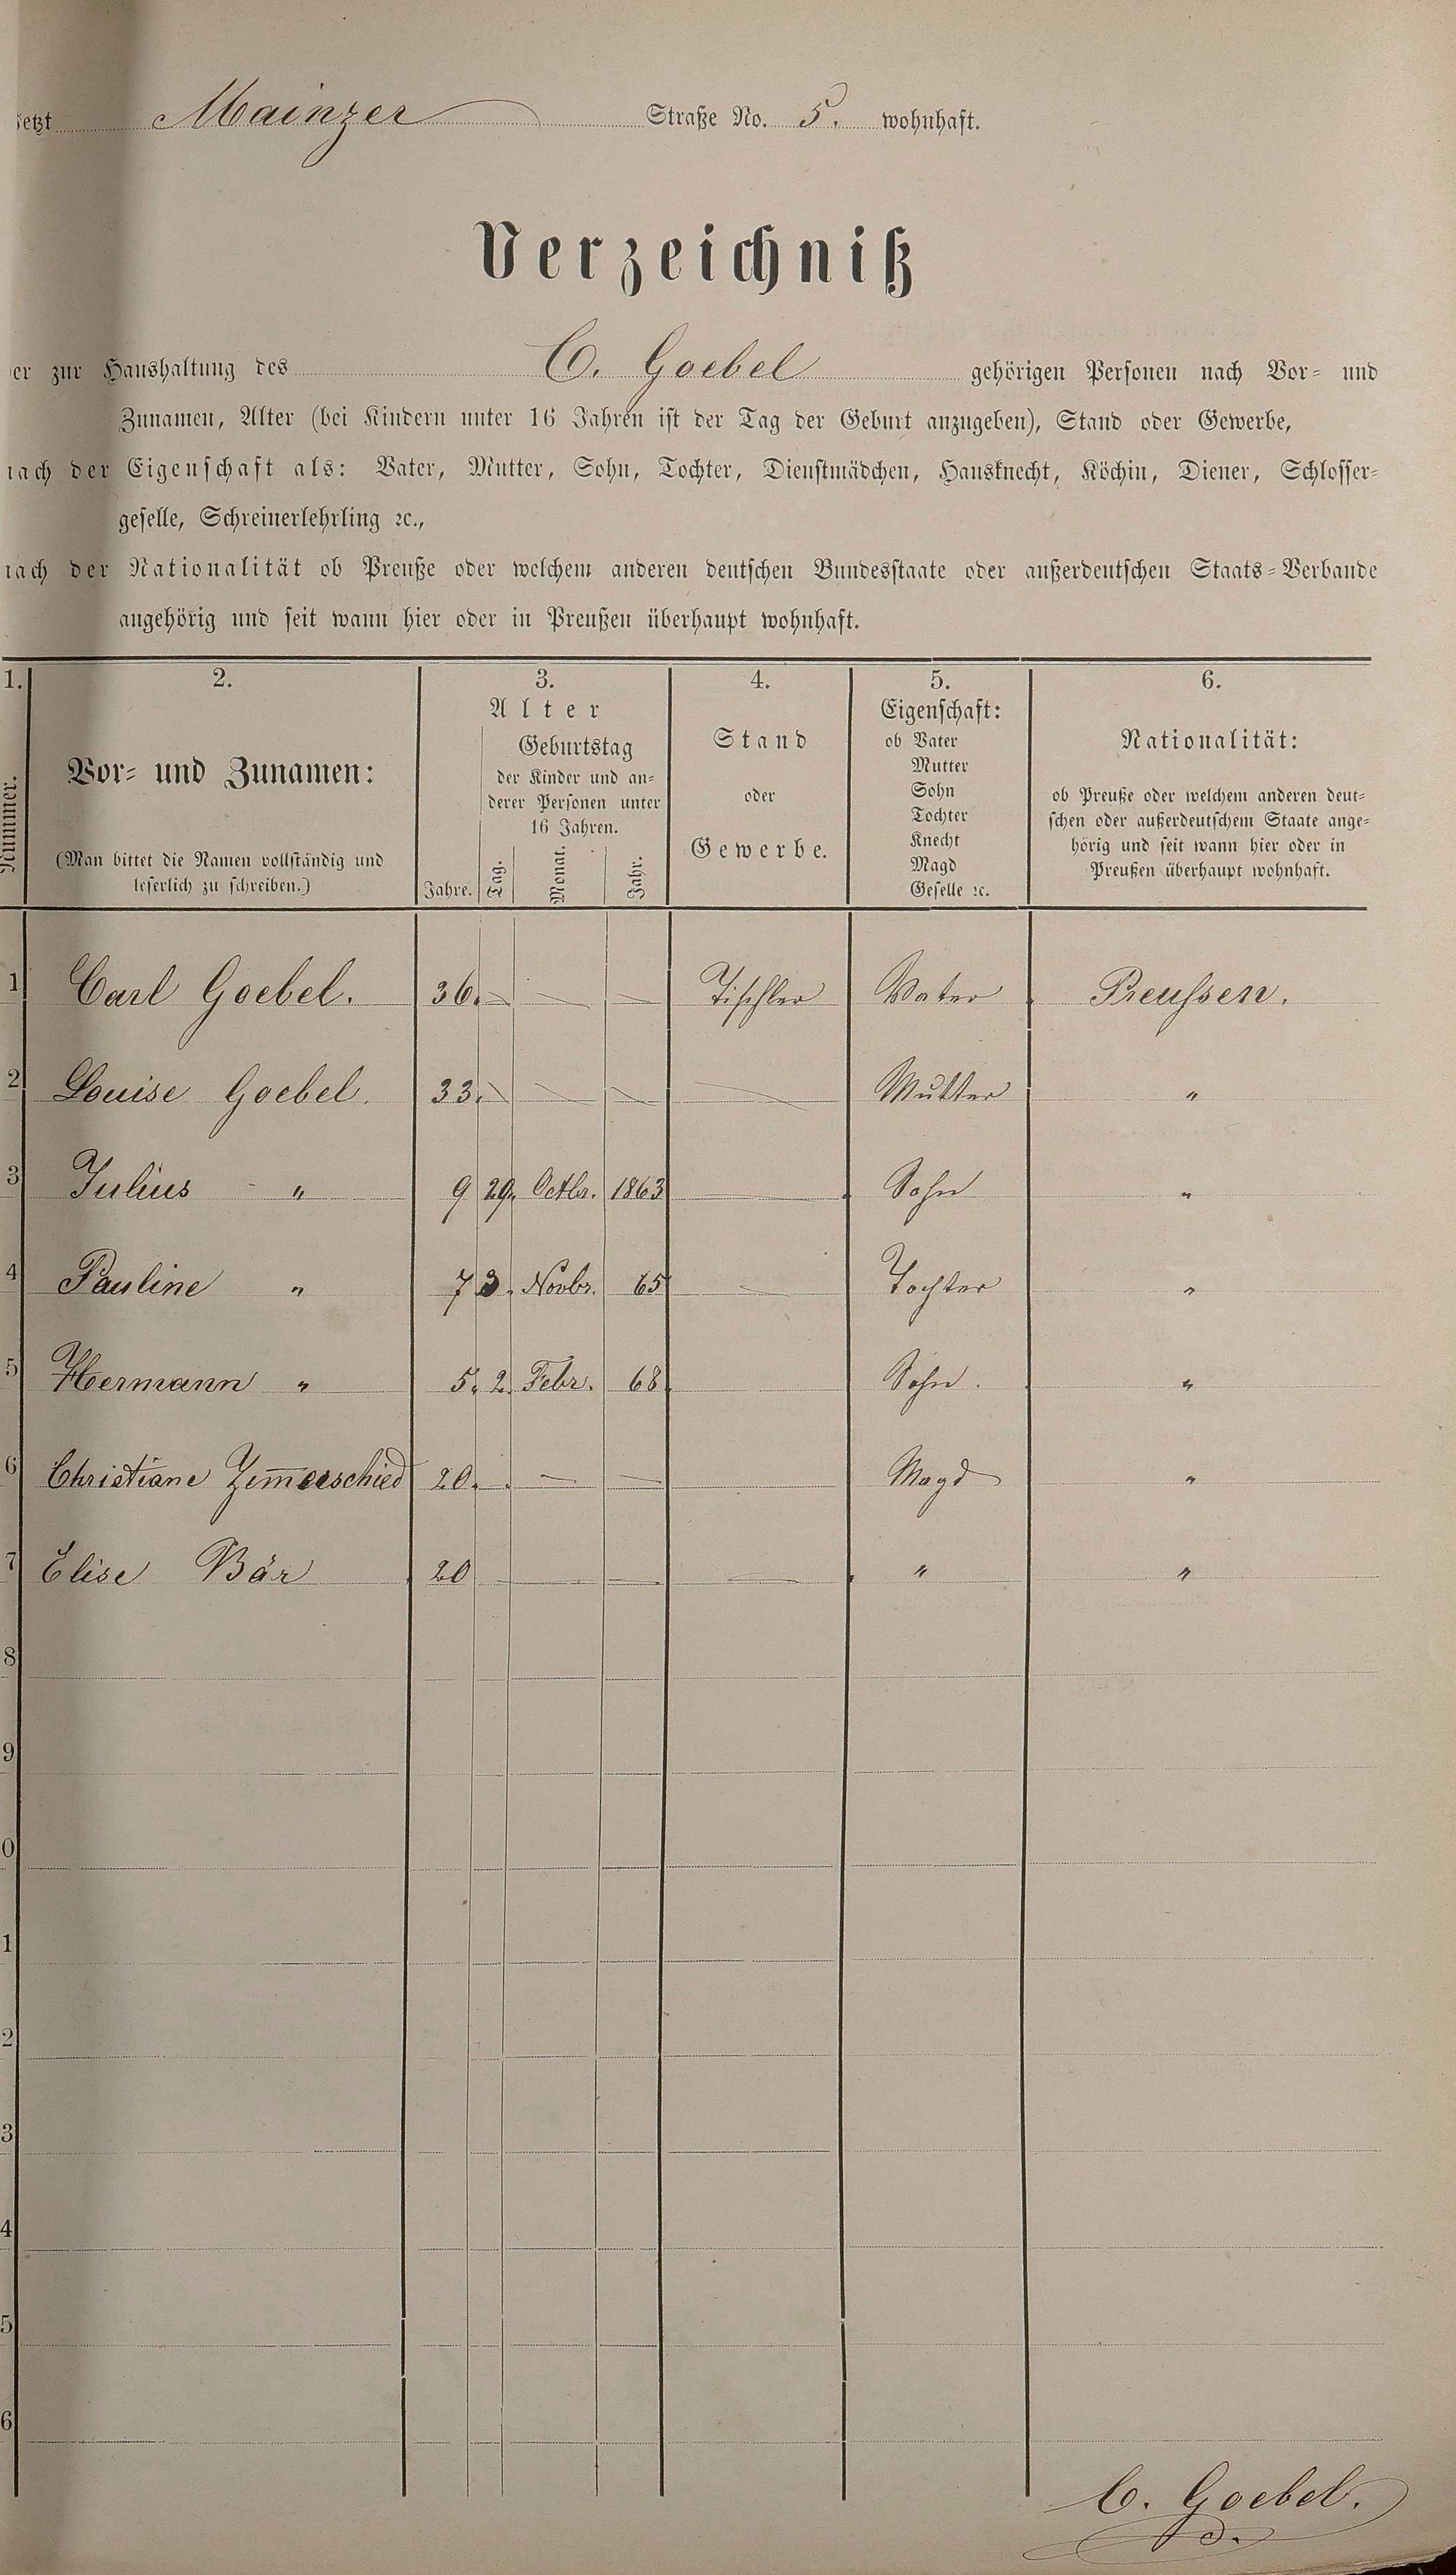 jetzt Mainzer Straße No. 5. wohnhaft.
Verzeichniß
der zur Haushaltung des C. Goebel gehörigen Personen nach Vor= und
Zunamen, Alter (bei Kindern unter 16 Jahren ist der Tag der Geburt anzugeben), Stand oder Gewerbe,
nach der Eigenschaft als: Vater, Mutter, Sohn, Tochter, Dienstmädchen, Hausknecht, Köchin, Diener, Schlosser=
geselle, Schreinerlehrling ꝛc.,
nach der Nationalität ob Preuße oder welchem anderen deutschen Bundesstaate oder außerdeutschen Staats=Verbande
angehörig und seit wann hier oder in Preußen überhaupt wohnhaft.
1. 2. 3. 4. 5. 6.
Nummer.
Vor= und Zunamen:
(Man bittet die Namen vollständig und
leserlich zu schreiben.)
Alter
Jahre.
Geburtstag
der Kinder und an=
derer Personen unter
16 Jahren.
Tag. Monat. Jahr.
Stand
oder
Gewerbe.
Eigenschaft:
ob Vater
Mutter
Sohn
Tochter
Knecht
Magd
Geselle ꝛc.
Nationalität:
ob Preuße oder welchem anderen deut=
schen oder außerdeutschem Staate ange=
hörig und seit wann hier oder in
Preußen überhaupt wohnhaft.
1 Carl Goebel. 36. — — — Tischler Vater Preussen.
2 Louise Goebel. 33. — — — — Mutter "
3 Julius " 9 29. Octbr. 1863 — Sohn "
4 Pauline " 7 3. Novbr. 65 — Tochter "
5 Hermann " 5. 2. Febr. 68. Sohn. "
6 Christiane Zem̅erschied 20. — — Magd "
7 Elise Bär 20 — — — " "
8
9
0
1
2
3
4
5
6
C. Goebel.